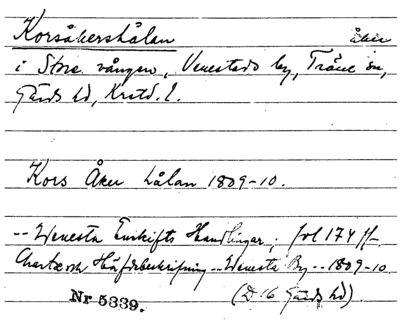 Korsåkershålan åker
i Stora vången, Venestads by, Träne sn,
Gärds hd, Krstd. l.
Kors Åker hålan 1809-10.
-- Wenesta Enskifts Handlingar; fol 174 ff-
Charta och Häfdebeskrifning -- Wenesta By -- 1809-10
Nr 5339. (D 16 Gärds hd).